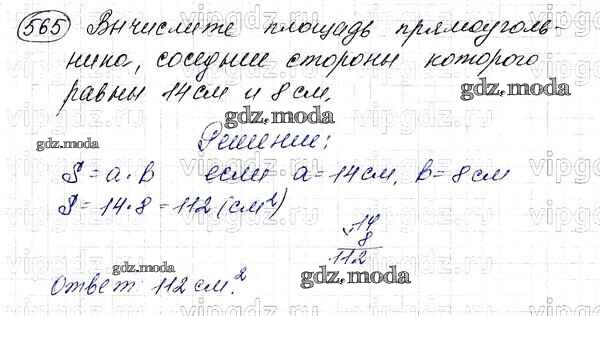 565 Вычислите площадь прямоуголь-
ника, соседние стороны которого
равны 14 см и 8 см.
gdz.moda
gdz.moda
gdz.moda
Решение:
S = a · b если a = 14 см, b = 8 см
S = 14 · 8 = 112 (см²)
14
× 8
112
gdz.moda
gdz.moda
Ответ: 112 см².